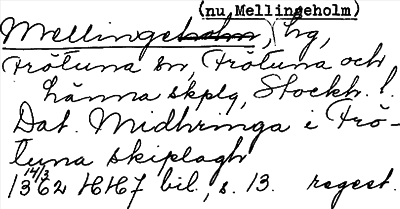 (nu Mellingeholm)
Mellingeholm, hg,
Frötuna sn, Frötuna och
Länna skplg, Stockh. l.
Dat. Midhringa i Frö-
tuna skiplagh
14/3 1362 HH7 bil., s. 13. regest.